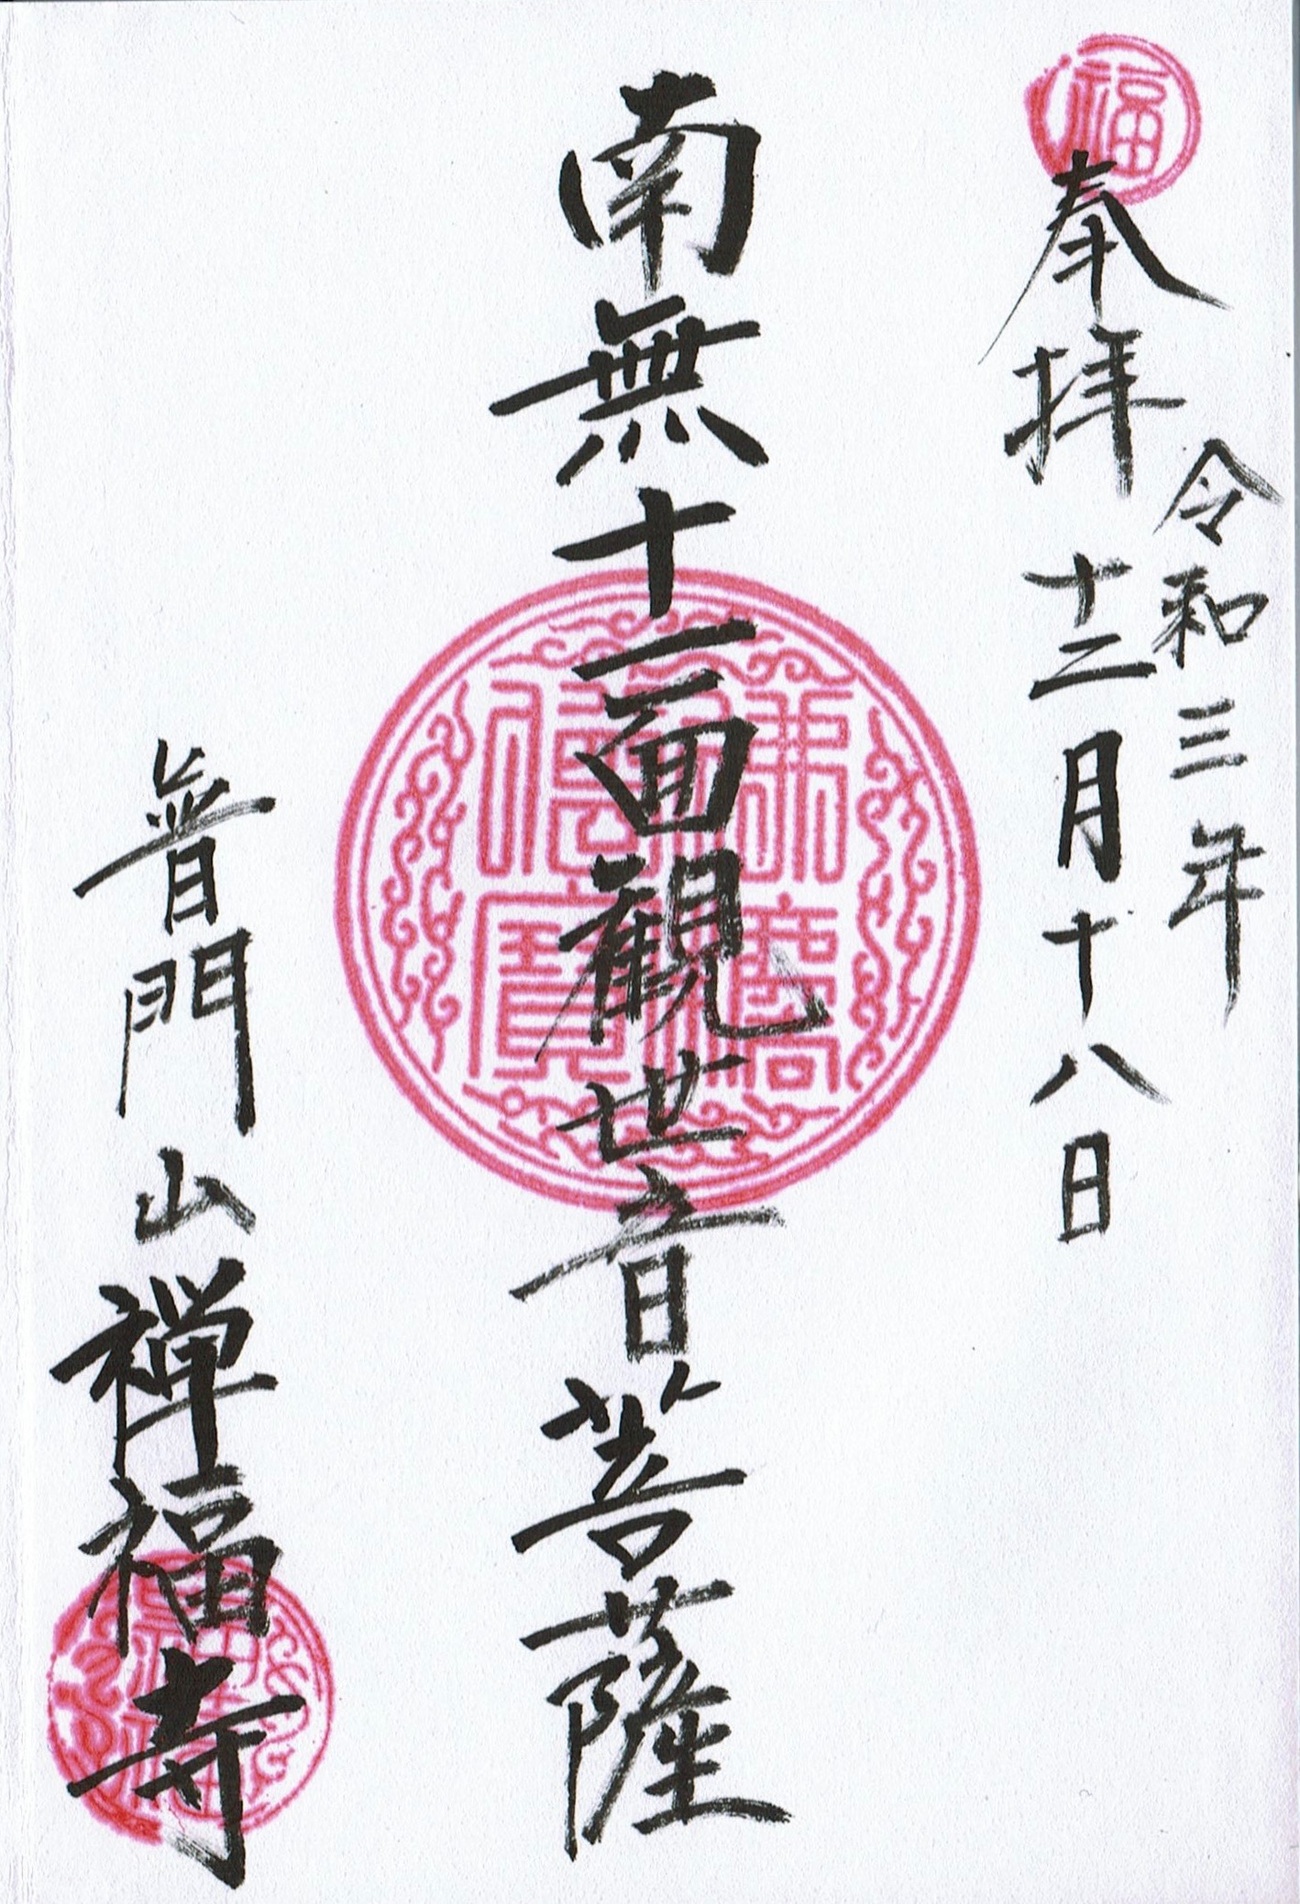 福
奉拝
令和三年
十二月十八日
南無十一面観世音菩薩
普門山禅福寺